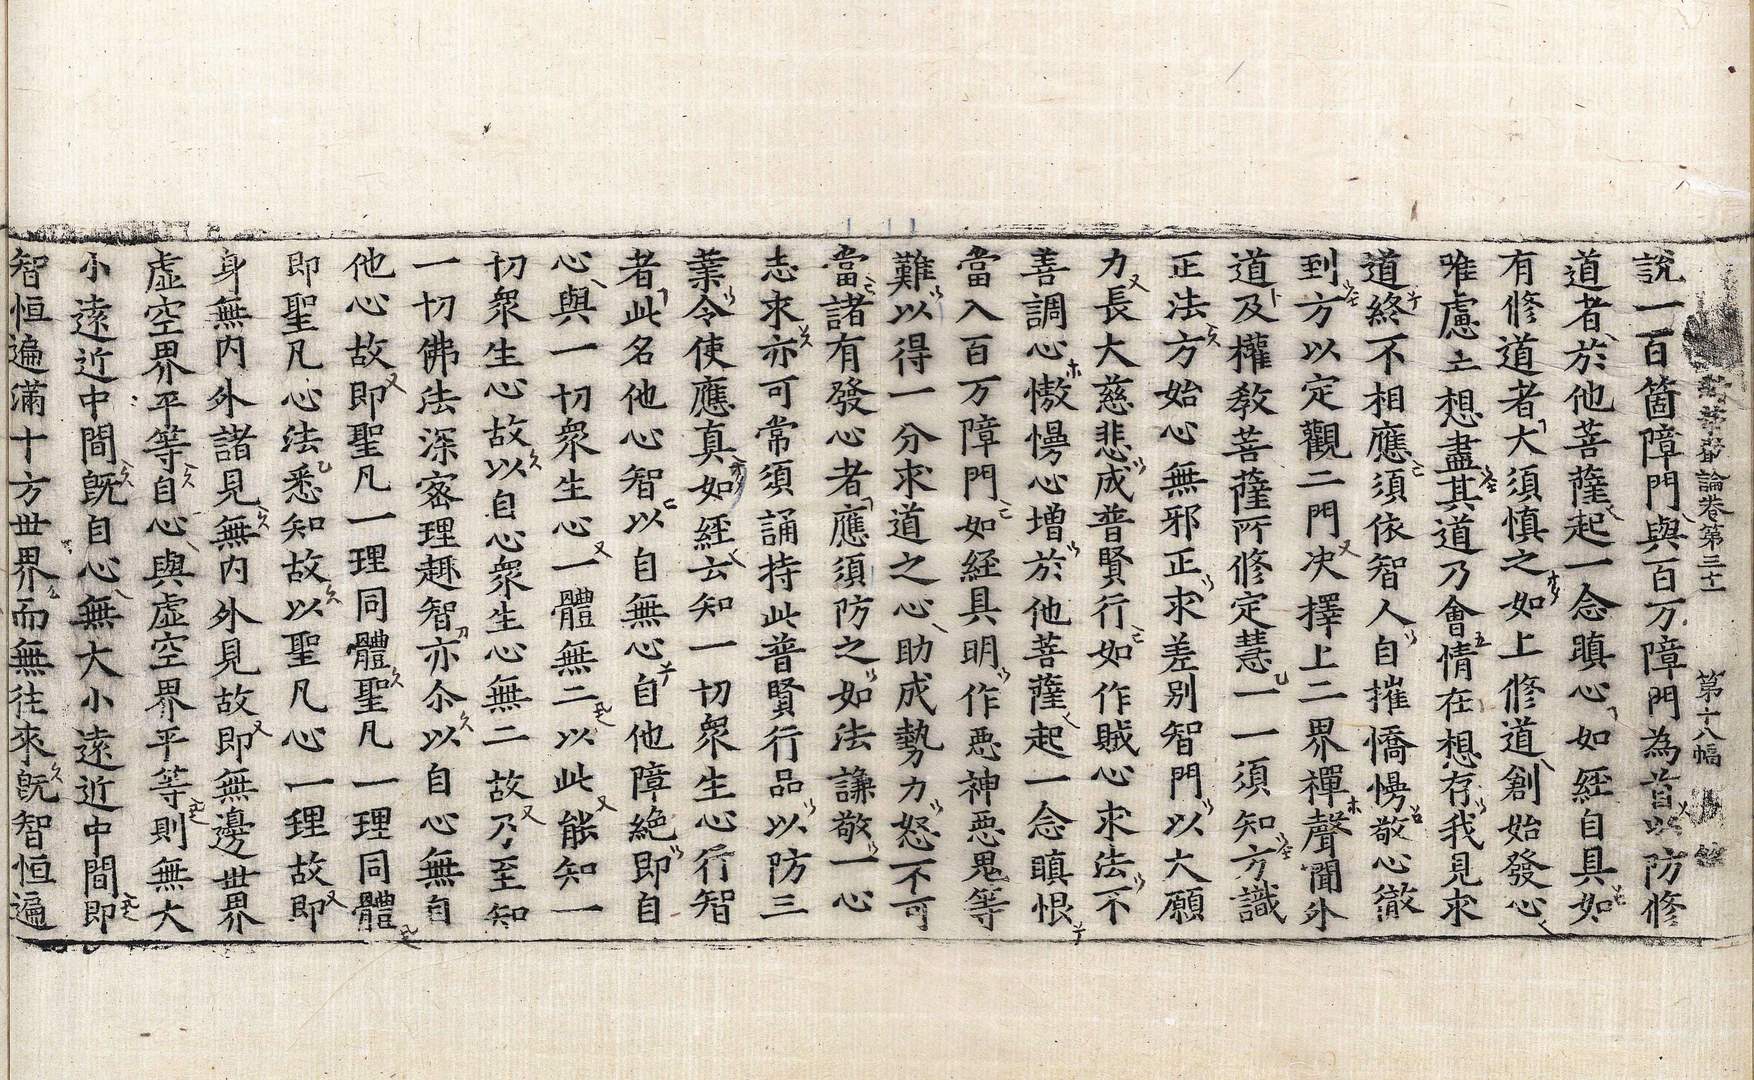 論卷第三十 第十八幅
說一百箇障門與百万障門為首以防修
道者於他菩薩起一念瞋心如經自具如
有修道者大須慎之如上修道創始發心
唯慮亡想盡其道乃會情在想存我見求
道終不相應須依智人自摧憍慢敬心徹
到方以定觀二門决擇上二界禪聲聞外
道及權教菩薩所修定慧一一須知方識
正法方始心無邪正求差别智門以大願
力長大慈悲成普賢行如作賊心求法不
善調心憿慢心增於他菩薩起一念瞋恨
當入百万障門如経具明作惡神惡鬼等
難以得一分求道之心助成勢力怒不可
當諸有發心者應須防之如法謙敬一心
志求亦可常須誦持此普賢行品以防三
業令使應真如經云知一切衆生心行智
者此名他心智以自無心自他障絶即自
心與一切衆生心一體無二以此能知一
切衆生心故以自心衆生心無二故乃至知
一切佛法深密理趣智亦尒以自心無自
他心故即聖凡一理同體聖凡一理同體
即聖凡心法悉知故以聖凡心一理故即
身無内外諸見無内外見故即無邊世界
虚空界平等自心與虚空界平等則無大
小遠近中間旣自心無大小遠近中間即
智恒遍滿十方世界而無往來旣智恒遍